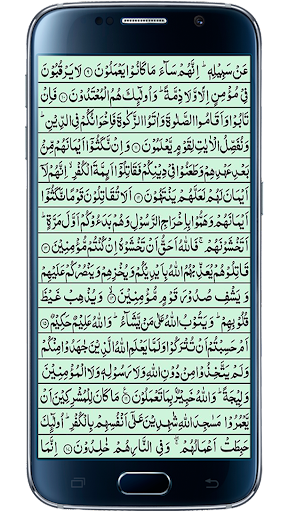 عَنْ سَبِيْلِهٖ ؕ اِنَّهُمْ سَآءَ مَا كَانُوْا يَعْمَلُوْنَ ۹ لَا يَرْقُبُوْنَ
فِيْ مُؤْمِنٍ اِلًّا وَّلَا ذِمَّةً ؕ وَاُولٰٓئِكَ هُمُ الْمُعْتَدُوْنَ ۱۰ فَاِنْ
تَابُوْا وَاَقَامُوا الصَّلٰوةَ وَاٰتَوُا الزَّكٰوةَ فَاِخْوَانُكُمْ فِي الدِّيْنِ ؕ
وَنُفَصِّلُ الْاٰيٰتِ لِقَوْمٍ يَّعْلَمُوْنَ ۱۱ وَاِنْ نَّكَثُوْۤا اَيْمَانَهُمْ مِّنْۢ
بَعْدِ عَهْدِهِمْ وَطَعَنُوْا فِيْ دِيْنِكُمْ فَقَاتِلُوْۤا اَئِمَّةَ الْكُفْرِ ۙ اِنَّهُمْ لَاۤ
اَيْمَانَ لَهُمْ لَعَلَّهُمْ يَنْتَهُوْنَ ۱۲ اَلَا تُقَاتِلُوْنَ قَوْمًا نَّكَثُوْۤا
اَيْمَانَهُمْ وَهَمُّوْا بِاِخْرَاجِ الرَّسُوْلِ وَهُمْ بَدَءُوْكُمْ اَوَّلَ مَرَّةٍ ؕ
اَتَخْشَوْنَهُمْ ۚ فَاللّٰهُ اَحَقُّ اَنْ تَخْشَوْهُ اِنْ كُنْتُمْ مُّؤْمِنِيْنَ ۱۳
قَاتِلُوْهُمْ يُعَذِّبْهُمُ اللّٰهُ بِاَيْدِيْكُمْ وَيُخْزِهِمْ وَيَنْصُرْكُمْ عَلَيْهِمْ
وَيَشْفِ صُدُوْرَ قَوْمٍ مُّؤْمِنِيْنَ ۱۴ وَيُذْهِبْ غَيْظَ
قُلُوْبِهِمْ ؕ وَيَتُوْبُ اللّٰهُ عَلٰى مَنْ يَّشَآءُ ؕ وَاللّٰهُ عَلِيْمٌ حَكِيْمٌ ۱۵
اَمْ حَسِبْتُمْ اَنْ تُتْرَكُوْا وَلَمَّا يَعْلَمِ اللّٰهُ الَّذِيْنَ جٰهَدُوْا مِنْكُمْ
وَلَمْ يَتَّخِذُوْا مِنْ دُوْنِ اللّٰهِ وَلَا رَسُوْلِهٖ وَلَا الْمُؤْمِنِيْنَ
وَلِيْجَةً ؕ وَاللّٰهُ خَبِيْرٌۢ بِمَا تَعْمَلُوْنَ ۱۶ مَا كَانَ لِلْمُشْرِكِيْنَ اَنْ
يَّعْمُرُوْا مَسٰجِدَ اللّٰهِ شٰهِدِيْنَ عَلٰۤى اَنْفُسِهِمْ بِالْكُفْرِ ؕ اُولٰٓئِكَ
حَبِطَتْ اَعْمَالُهُمْ ۖۚ وَفِي النَّارِ هُمْ خٰلِدُوْنَ ۱۷ اِنَّمَا